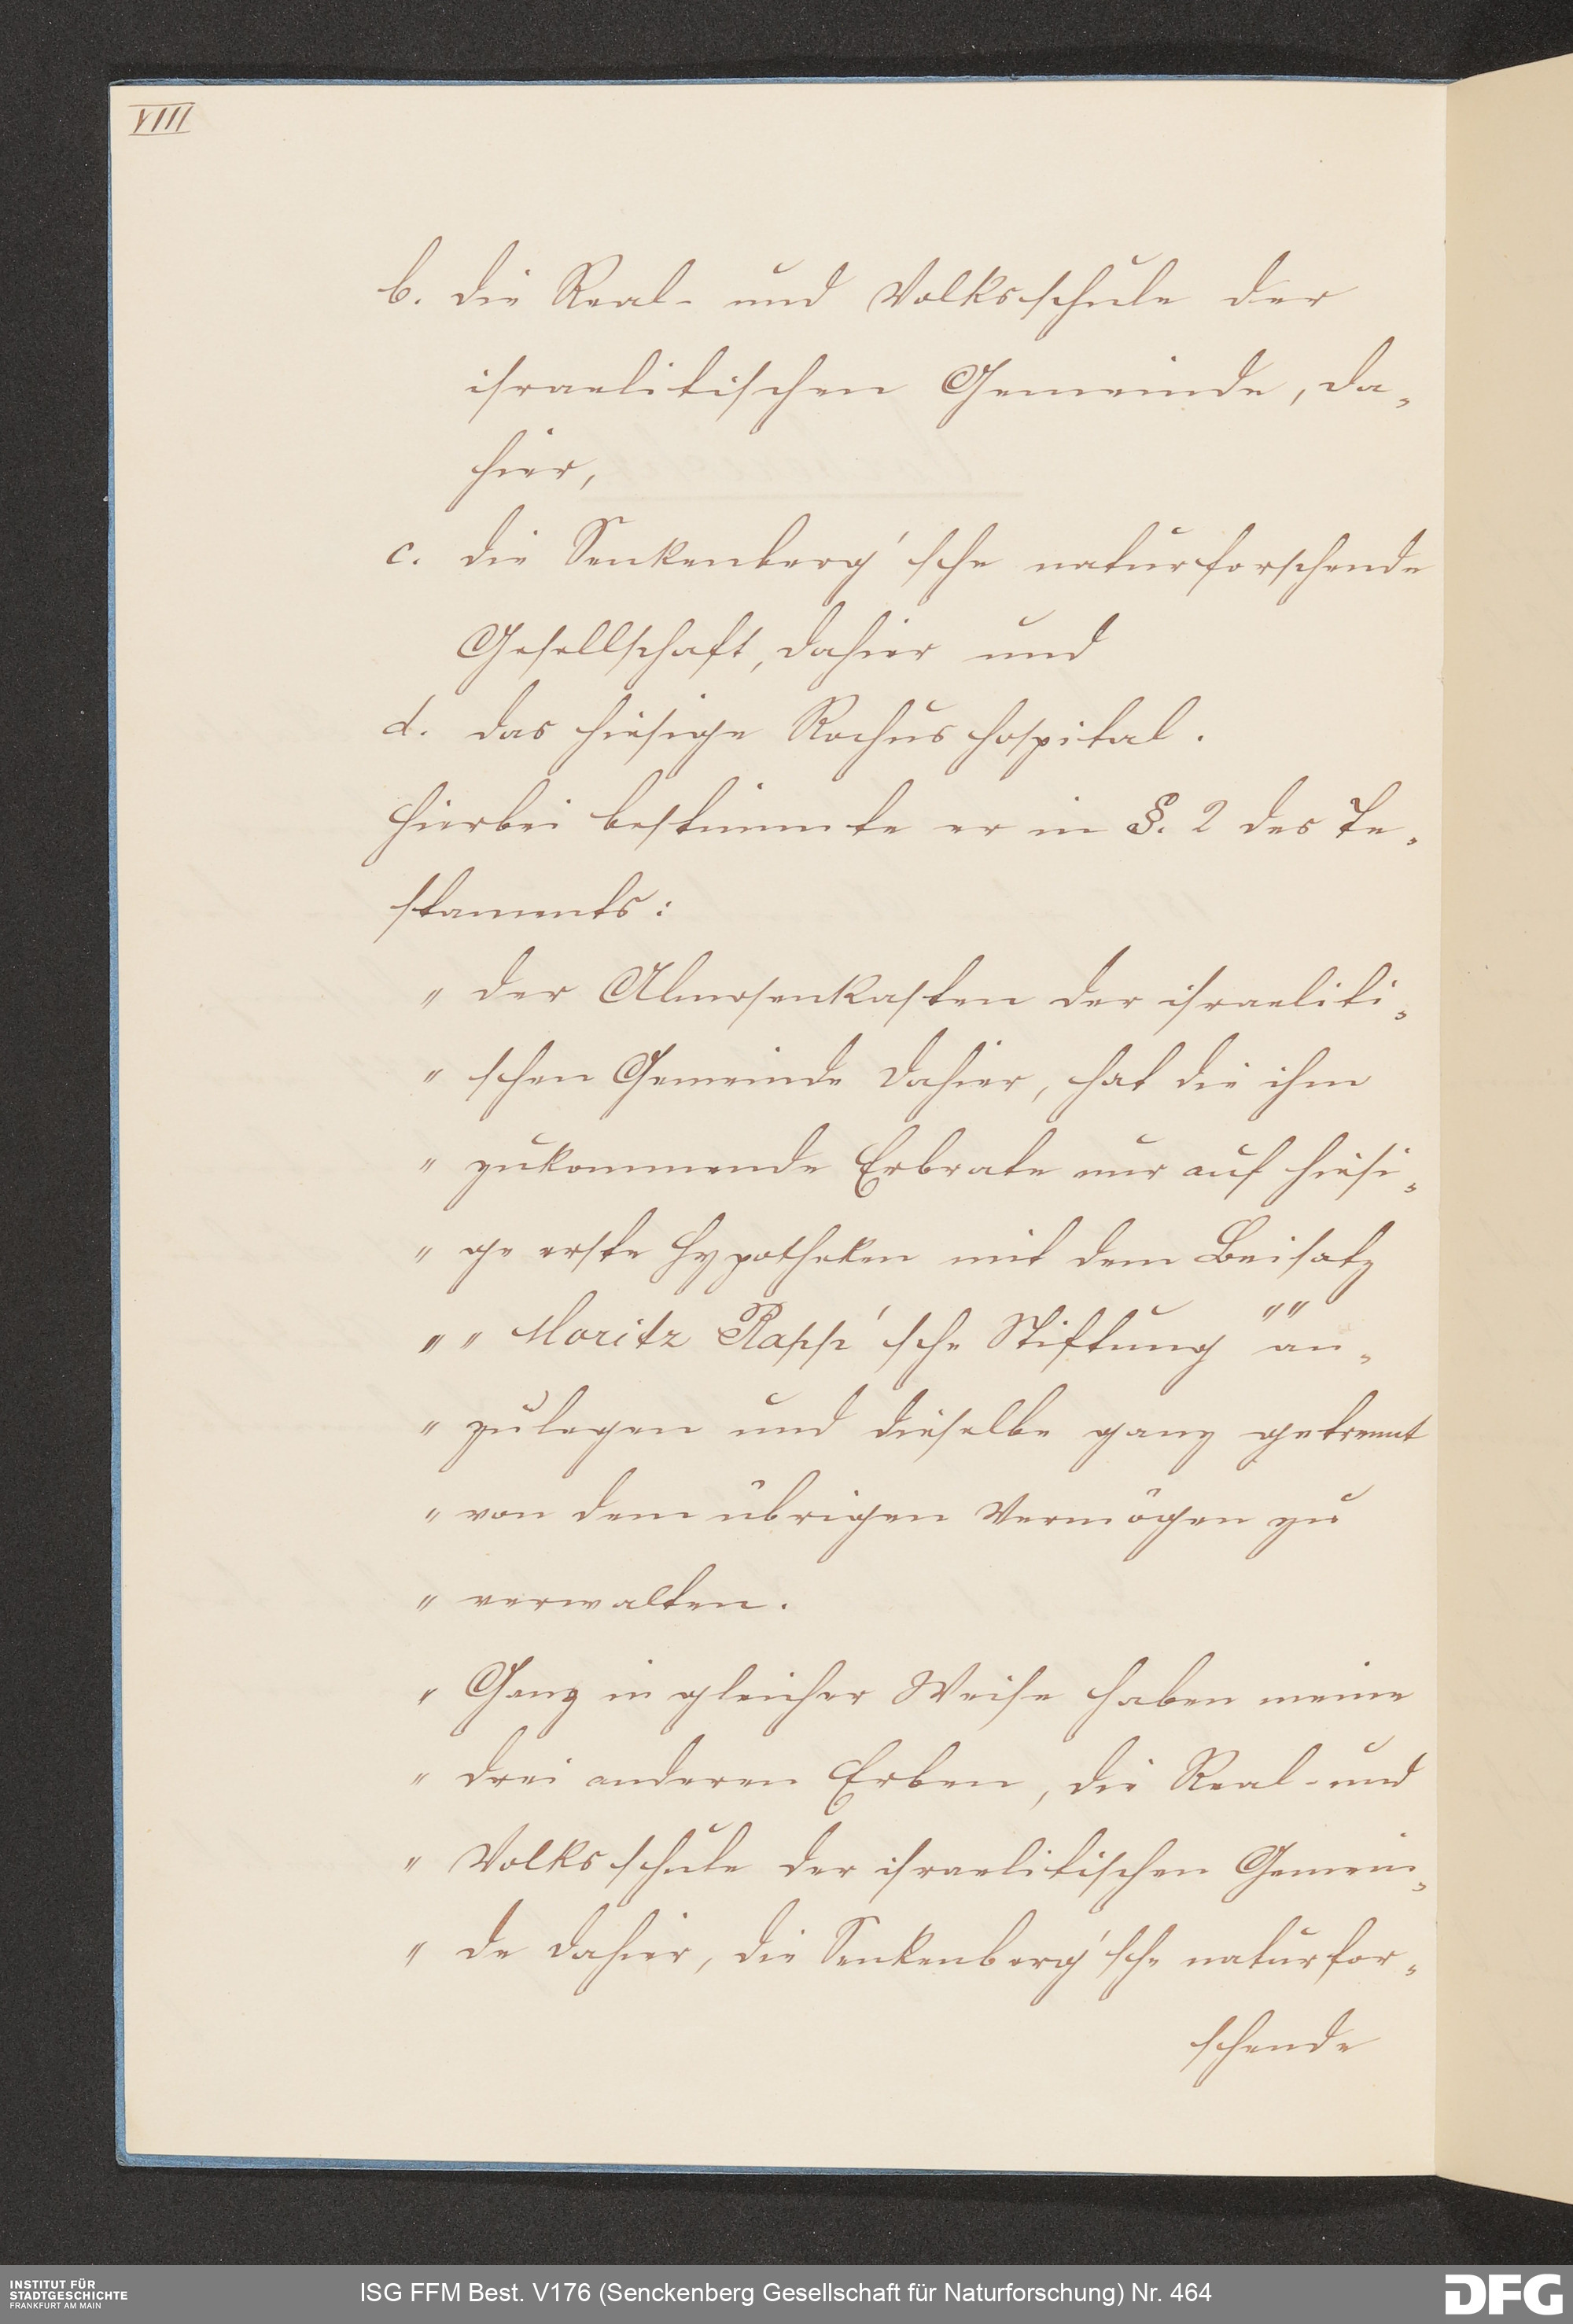 VIII
b. die Real- und Volksschule der
israelitischen Gemeinde, da„
hier,
c. die Senkenberg'sche naturforschende
Gesellschaft, dahier und
d. das hiesige Rochushospital.
Hierbei bestimmte er in §. 2 des Te„
staments:
„ der Almosenkasten der israeliti„
„ schen Gemeinde dahier, hat die ihm
„ zukommende Erbrate nur auf hiesi„
„ ge erste Hypotheken mit dem Beisatz
„ „ Moritz Rapp'sche Stiftung "" an„
„ zulegen und dieselbe ganz getrennt
„ von dem übrigen Vermögen zu
„ verwalten.
„ Ganz in gleicher Weise haben meine
„ drei anderen Erben, die Real- und
„ Volksschule der israelitischen Gemein„
„ de dahier, die Senkenberg'sche naturfor„
schende
INSTITUT FÜR
STADTGESCHICHTE
FRANKFURT AM MAIN
ISG FFM Best. V176 (Senckenberg Gesellschaft für Naturforschung) Nr. 464
DFG